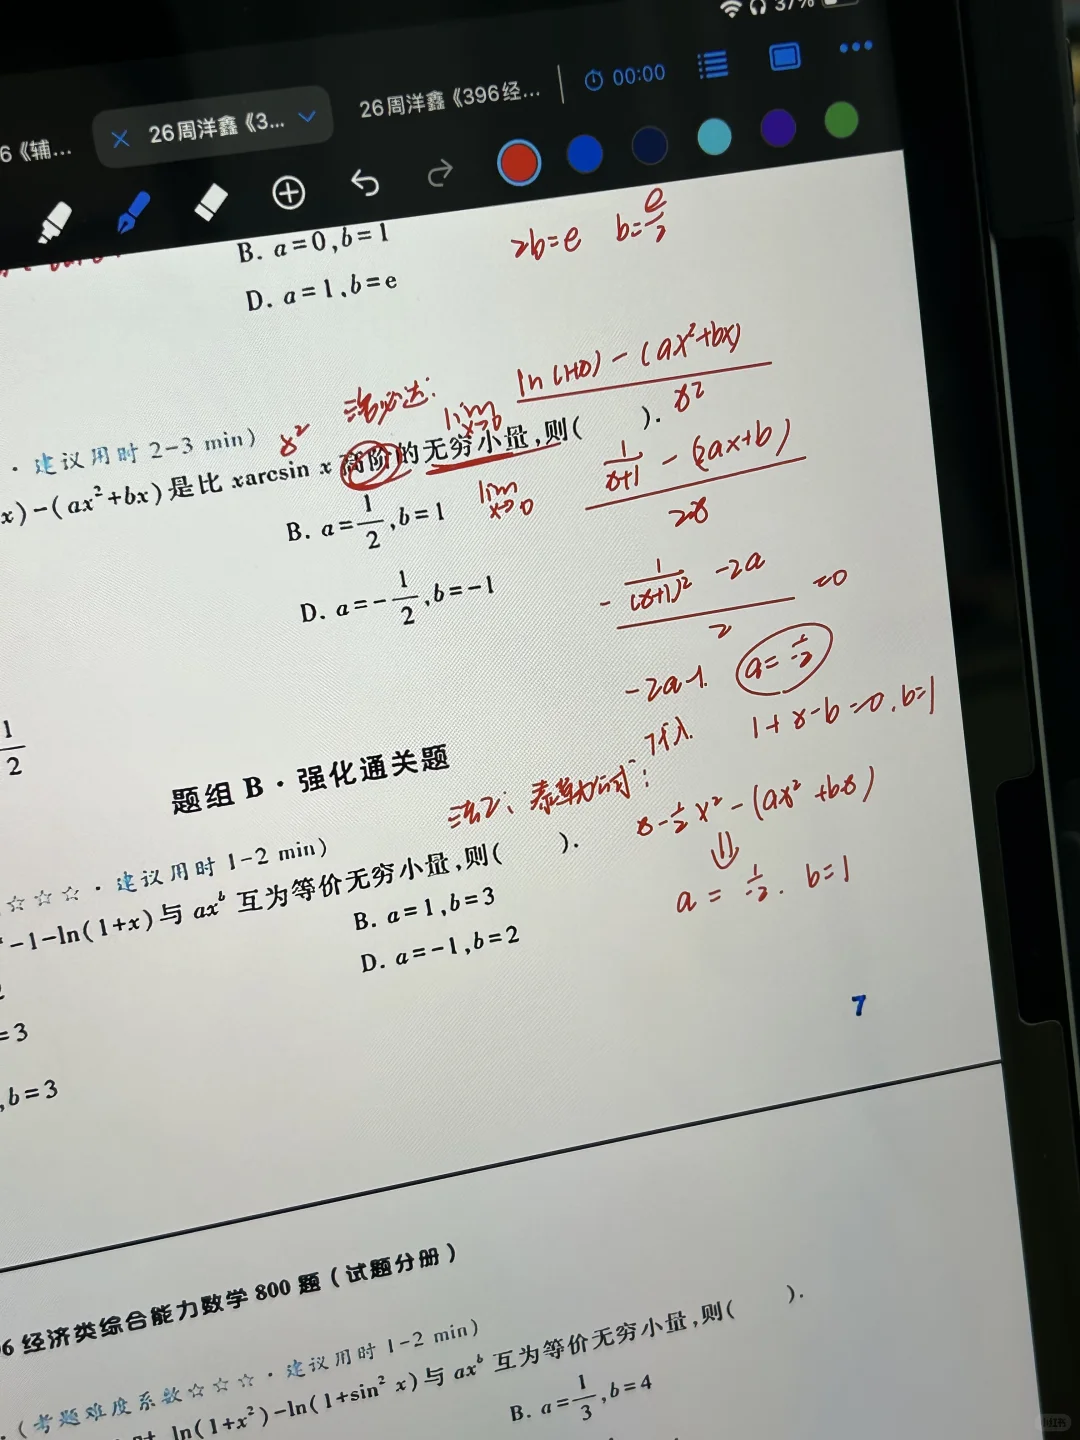 37%
6《辅...
26周洋鑫《3...
26周洋鑫《396经...
00:00
B. a=0,b=1
2b=e b=e/2
D. a=1,b=e
ln(1+x)-(ax²+bx)
x²
法必达:
lim x→0
· 建议用时 2-3 min)
x²
x)-(ax²+bx)是比 xarcsin x 高阶的无穷小量,则( ).
1/(x+1) - (2ax+b)
2x
lim x→0
B. a=1/2,b=1
D. a=-1/2,b=-1
- 1/(x+1)² -2a
2
=0
-2a-1. a=1/-2
代入 1+x-b=0.b=1
1/2
题组 B·强化通关题
法2:泰勒公式:
x-1/2x²-(ax²+bx)
⇓
a=1/-2. b=1
☆☆☆☆·建议用时 1-2 min)
-1-ln(1+x)与 axᵇ 互为等价无穷小量,则( ).
B. a=1,b=3
D. a=-1,b=2
=3
,b=3
7
6 经济类综合能力数学 800 题(试题分册)
.(考题难度系数☆☆☆·建议用时 1-2 min)
ln(1+x²)-ln(1+sin² x)与 axᵇ 互为等价无穷小量,则( ).
B. a=1/3,b=4